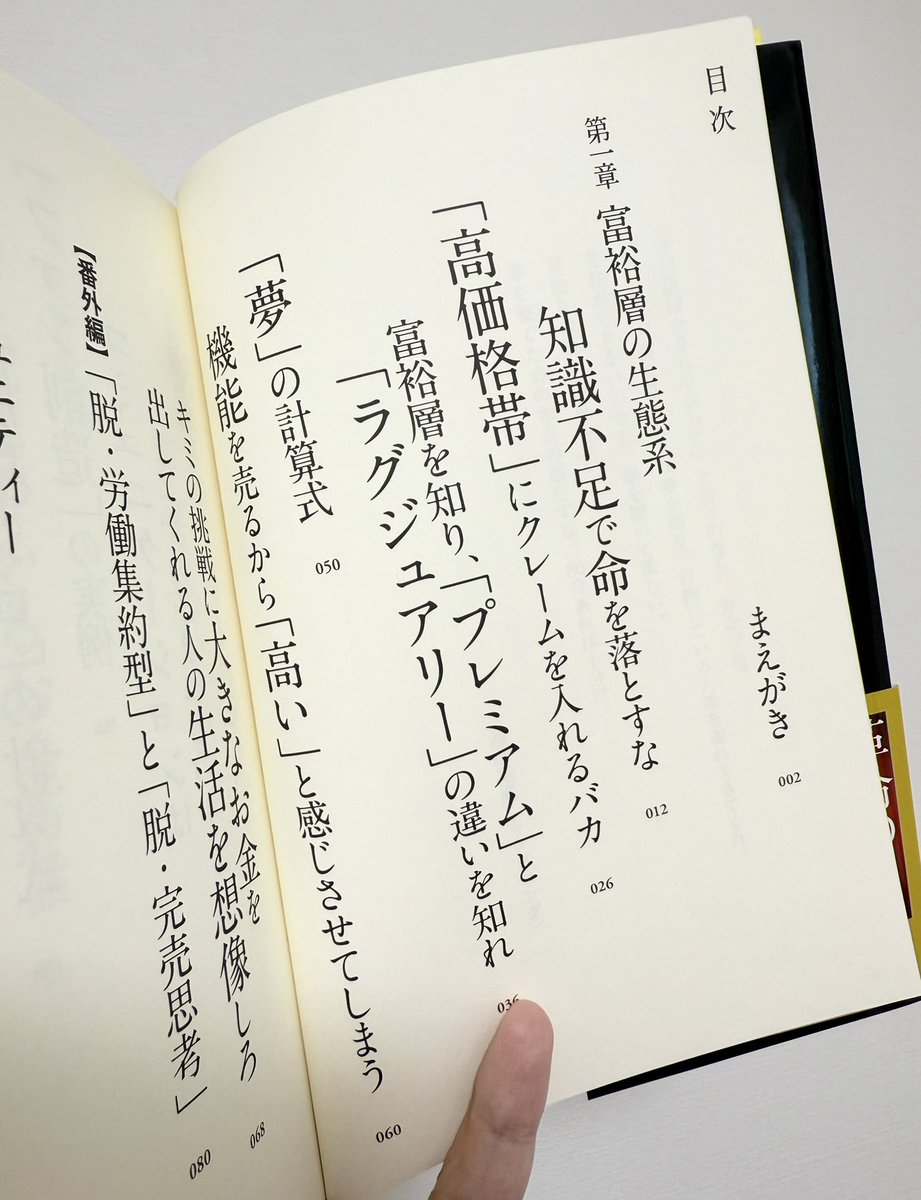 目次
まえがき 002
第一章 富裕層の生態系
知識不足で命を落とすな 012
「高価格帯」にクレームを入れるバカ 026
富裕層を知り、「プレミアム」と
「ラグジュアリー」の違いを知れ 036
「夢」の計算式 050
機能を売るから「高い」と感じさせてしまう 060
キミの挑戦に大きなお金を
出してくれる人の生活を想像しろ 068
【番外編】「脱・労働集約型」と「脱・完売思考」 080
ュニティー